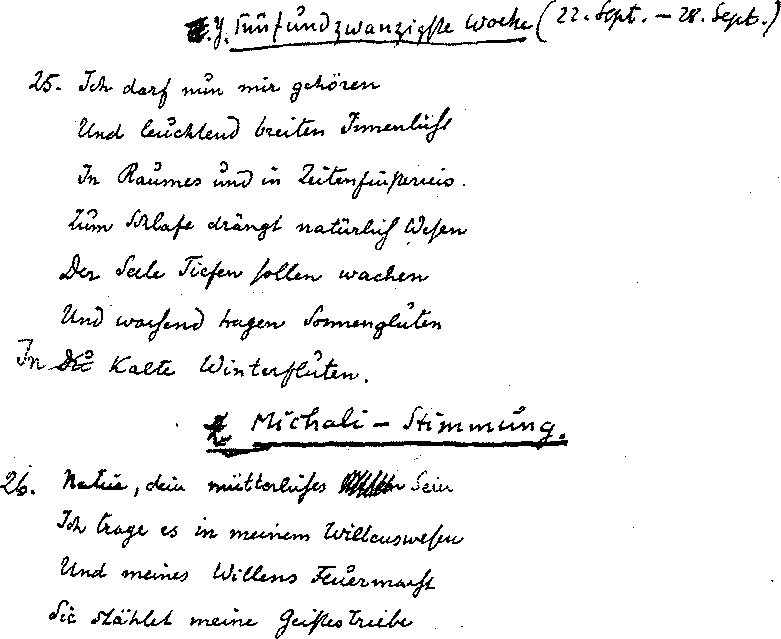 Y. Fünfundzwanzigste Woche (22. Sept. – 28. Sept.)
25. Ich darf nun mir gehören
Und leuchtend breiten Innenlicht
In Raumes und in Zeitenfinsternis.
Zum Schlafe drängt natürlich Wesen
Der Seele Tiefen sollen wachen
Und wachend tragen Sonnengluten
In Kalte Winterfluten.
Michaeli – Stimmung.
26. Natur, dein mütterliches Sein
Ich trage es in meinem Willenswesen
Und meines Willens Feuermacht
Sie stählet meine Geistestriebe